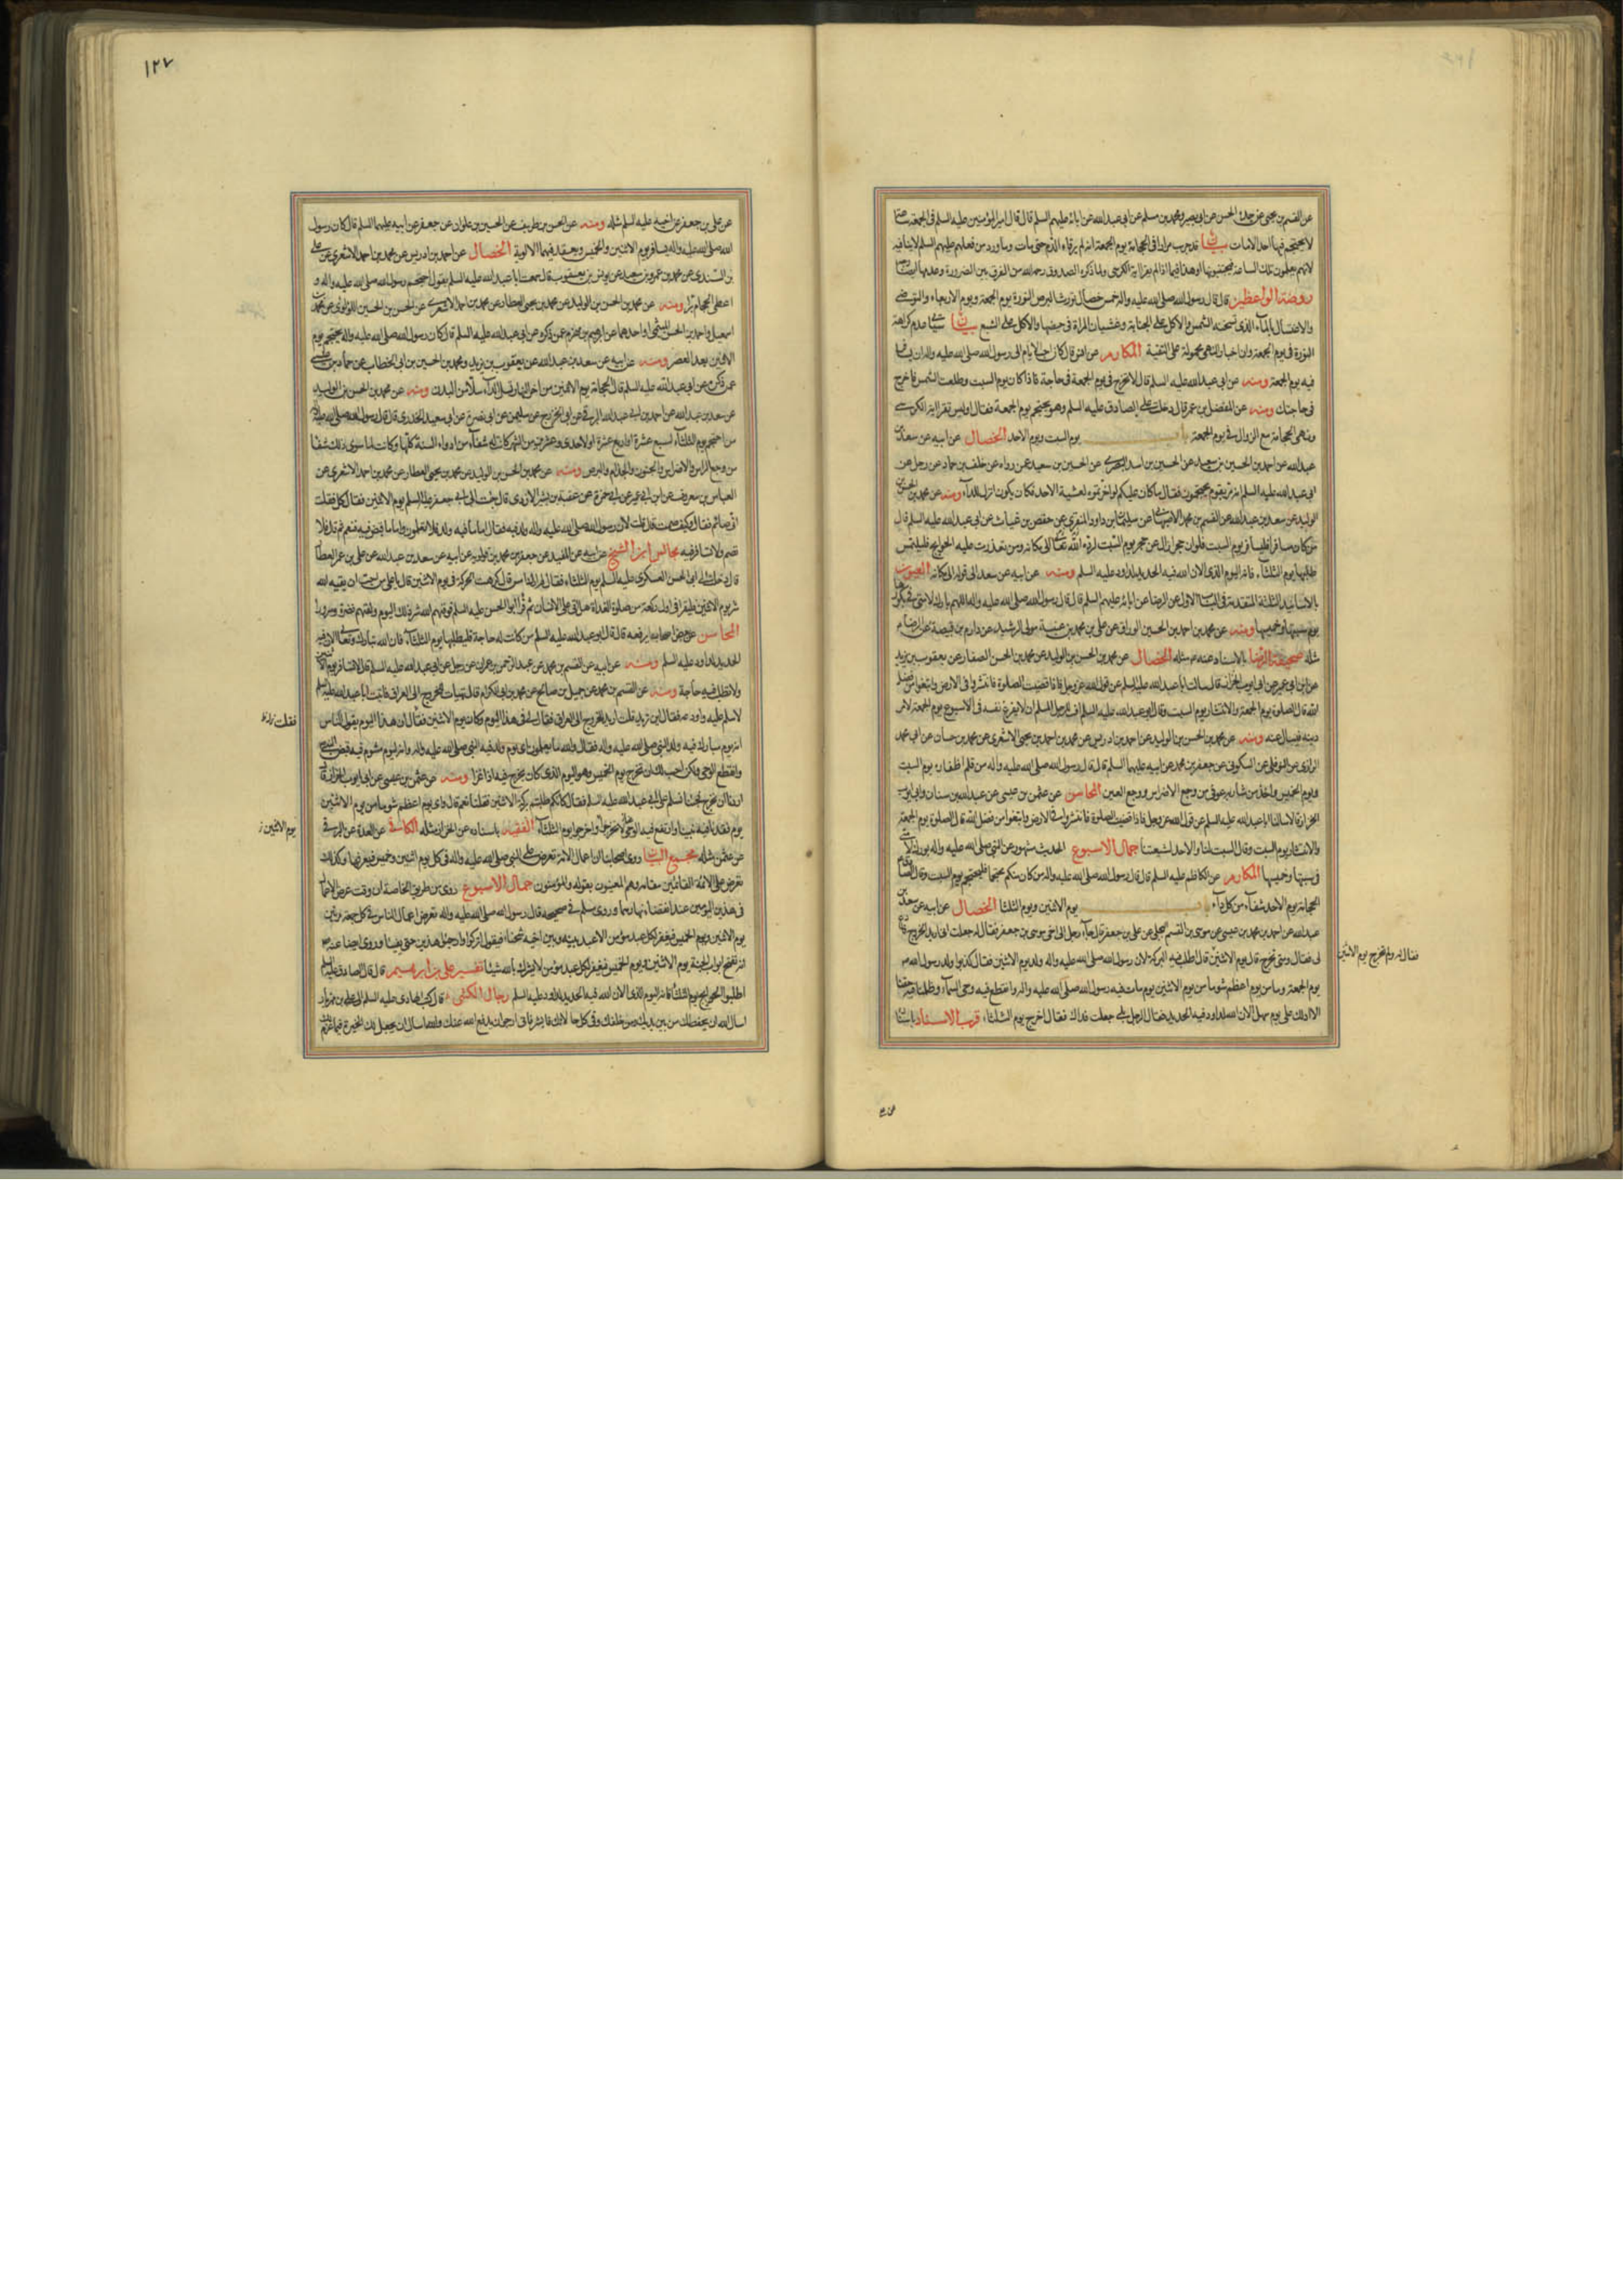 عن القسم بن يحيى عن جده الحسن عن ابى بصير ومحمد بن مسلم عن ابى عبدالله عن ابائه عليهم السلم قال قال امير المؤمنين عليه السلم فى الجمعة ساعة
لا يحتجم فيها احد الا مات بيان
لانهم يعلمون تلك الساعة فيجتنبونها
روضة الواعظين قال قال رسول الله صلى الله عليه واله خمس خصال تورث البرص النورة يوم الجمعة ويوم الاربعاء والتوضى
والاغتسال بالماء الذى تسخنه الشمس والاكل على الجنابة وغشيان المراة فى حيضها والاكل على الشبع بيان
النورة فى يوم الجمعة وان اخبار النهى محمولة على التقية المكارم
فيه يوم الجمعة ومنه عن ابى عبدالله عليه السلم قال لا تخرج فى يوم الجمعة فى حاجة فاذا كان يوم السبت وطلعت الشمس فاخرج
فى حاجتك ومنه عن المفضل بن عمر قال دخلت على الصادق عليه السلم وهو يحتجم يوم الجمعة فقال اوليس تقرا اية الكرسى
ونهى عن الحجامة مع الزوال فى يوم الجمعة باب يوم السبت ويوم الاحد الخصال عن ابيه عن سعد بن
عبدالله عن احمد بن الحسين بن سعيد عن الحسين بن اسد البصرى عن الحسين بن سعيد عمن رواه عن خلف بن حماد عن رجل عن
ابى عبدالله عليه السلم انه مر بقوم يحتجمون فقال ما كان عليكم لو اخرتموه لعشية الاحد فكان يكون انزل للداء ومنه عن محمد بن الحسن بن
الوليد عن سعد بن عبدالله عن القسم بن محمد الاصبهانى عن سليمان بن داود المنقرى عن حفص بن غياث عن ابى عبدالله عليه السلم قال
من كان مسافرا فليسافر يوم السبت فلو ان حجرا زال عن حجر يوم السبت لرده الله تعالى الى مكانه ومن تعذرت عليه الحوائج فليلتمس
طلبها يوم الثلثاء فانه اليوم الذى الان الله فيه الحديد لداود عليه السلم ومنه عن ابيه عن سعد الى قوله الى مكانه العيون
بالاسانيد الثلثة المتقدمة فى الباب الاول عن الرضا عن ابائه عليهم السلم قال قال رسول الله صلى الله عليه واله اللهم بارك لامتى فى بكورها
يوم سبتها وخميسها ومنه عن محمد بن احمد بن الحسين الوراق عن على بن محمد بن عنبسة مولى الرشيد عن دارم بن قبيصة عن الرضا
مثله صحيفة الرضا بالاسناد عنه مثله الخصال عن محمد بن الحسن بن الوليد عن محمد بن الحسن الصفار عن يعقوب بن يزيد
عن ابن ابى عمير عن ابى ايوب الخزاز قال سالت ابا عبدالله عليه السلم عن قول الله عز وجل فاذا قضيت الصلوة فانتشروا فى الارض وابتغوا من فضل
الله قال الصلوة يوم الجمعة والانتشار يوم السبت وقال ابو عبدالله عليه السلم اف للرجل المسلم ان لا يفرغ نفسه فى الاسبوع يوم الجمعة لامر
دينه فيسال عنه ومنه عن محمد بن الحسن بن الوليد عن احمد بن ادريس عن محمد بن احمد بن يحيى الاشعرى عن محمد بن حسان عن ابى محمد
الرازى عن النوفلى عن السكونى عن جعفر بن محمد عن ابيه عليهما السلم قال قال رسول الله صلى الله عليه واله من قلم اظفاره يوم السبت
ويوم الخميس واخذ من شاربه عوفى من وجع الاضراس ووجع العين المحاسن عن عثمن بن عيسى عن عبدالله بن سنان وابى ايوب
الخزاز قالا سالنا ابا عبدالله عليه السلم عن قول الله عز وجل فاذا قضيت الصلوة فانتشروا فى الارض وابتغوا من فضل الله قال الصلوة يوم الجمعة
والانتشار يوم السبت وقال السبت لنا والاحد لشيعتنا جمال الاسبوع الحديث مشهور عن النبى صلى الله عليه واله بورك لامتى
فى سبتها وخميسها المكارم عن الكاظم عليه السلم قال قال رسول الله صلى الله عليه واله من كان منكم محتجما فليحتجم يوم السبت وقال
الحجامة يوم الاحد شفاء من كل داء باب يوم الاثنين ويوم الثلثا الخصال عن ابيه عن سعد بن
عبدالله عن احمد بن محمد بن عيسى عن موسى بن القسم البجلى عن على بن جعفر قال جاء رجل الى اخى موسى بن جعفر فقال له جعلت فداك انى اريد الخروج فادع
لى فقال ومتى تخرج قال يوم الاثنين
فقال له ولم تخرج يوم الاثنين
قال اطلب فيه البركة لان رسول الله صلى الله عليه واله ولد يوم الاثنين فقال كذبوا ولد رسول الله
يوم الجمعة وما من يوم اعظم شوما من يوم الاثنين يوم مات فيه رسول الله صلى الله عليه واله وانقطع فيه وحى السماء وظلمنا فيه حقنا
الا ادلك على يوم سهل الان الله لداود فيه الحديد فقال الرجل بلى جعلت فداك فقال اخرج يوم الثلثاء قرب الاسناد
١٢٧
عن على بن جعفر عن اخيه عليه السلم مثله ومنه عن الحسن بن ظريف عن الحسين بن علوان عن جعفر عن ابيه عليهما السلم قال كان رسول
الله صلى الله عليه واله يسافر يوم الاثنين والخميس ويعقد فيهما الالوية الخصال عن احمد بن ادريس عن محمد بن احمد الاشعرى عن على
بن السندى عن محمد بن عمرو بن سعيد عن يونس بن يعقوب قال سمعت ابا عبدالله عليه السلم يقول احتجم رسول الله صلى الله عليه واله و
اعطى الحجام برا ومنه عن محمد بن الحسن بن الوليد عن محمد بن يحيى العطار عن محمد بن احمد الاشعرى عن الحسن بن الحسين اللؤلؤى عن محمد بن
اسمعيل واحمد بن الحسن الميثمى او احدهما عن ابرهيم بن مهزم عمن ذكره عن ابى عبدالله عليه السلم قال كان رسول الله صلى الله عليه واله يحتجم يوم
الاثنين بعد العصر ومنه عن ابيه عن سعد بن عبدالله عن يعقوب بن يزيد ومحمد بن الحسين بن ابى الخطاب عن حماد بن عيسى
عمن ذكره عن ابى عبدالله عليه السلم قال الحجامة يوم الاثنين من اخر النهار تسل الداء سلا من البدن ومنه عن محمد بن الحسن بن الوليد
عن سعد بن عبدالله عن احمد بن ابى عبدالله البرقى عن ابى الخزرج عن سليمن عن ابى نضرة عن ابى سعيد الخدرى قال قال رسول الله صلى الله عليه واله
من احتجم يوم الثلثاء لسبع عشرة او اربع عشرة او لاحدى وعشرين من الشهر كانت له شفاء من ادواء السنة كلها وكانت لما سوى ذلك شفا
من وجع الراس والاضراس والجنون والجذام والبرص ومنه عن محمد بن الحسن بن الوليد عن محمد بن يحيى العطار عن محمد بن احمد الاشعرى عن
العباس بن معروف عن ابن ابى عمير عن ابى حمزة عن عقبة بن بشير الازدى قال جئت الى ابى جعفر عليه السلم يوم الاثنين فقال كل فقلت
انى صائم فقال وكيف صمت قال قلت لان رسول الله صلى الله عليه واله ولد فيه فقال اما ما فيه ولد فلا تعلمون واما ما قبض فيه فنعم ثم قال فلا
تصم ولا تسافر فيه مجالس ابن الشيخ عن ابيه عن المفيد عن جعفر بن محمد بن قولويه عن ابيه عن سعد بن عبدالله عن على بن عمر العطار
قال دخلت على ابى الحسن العسكرى عليه السلم يوم الثلثاء فقال لم ارك امس قال كرهت الحركة فى يوم الاثنين قال يا على من احب ان يقيه الله
شر يوم الاثنين فليقرا فى اول ركعة من صلوة الغداة هل اتى على الانسان ثم قرا ابو الحسن عليه السلم فوقيهم الله شر ذلك اليوم ولقيهم نضرة وسرورا
المحاسن عن بعض اصحابه يرفعه قال قال ابو عبدالله عليه السلم من كانت له حاجة فليطلبها يوم الثلثاء فان الله تبارك وتعالى الان فيه
الحديد لداود عليه السلم ومنه عن ابيه عن القسم بن محمد عن عبد الرحمن بن عمران عن رجل عن ابى عبدالله عليه السلم قال لا تسافر يوم الاثنين
ولا تطلب فيه حاجة ومنه عن القسم بن محمد عن جميل بن صالح عن محمد بن ابى الكرام قال تهيات للخروج الى العراق فاتيت ابا عبدالله عليه السلم
لاسلم عليه واودعه فقال اين تريد قلت اريد الخروج الى العراق فقال لى فى هذا اليوم وكان يوم الاثنين
فقلت
فقال ان هذا اليوم يقول الناس
انه يوم مبارك فيه ولد النبى صلى الله عليه واله فقال والله ما يعلمون اى يوم ولد فيه النبى صلى الله عليه واله وانه ليوم مشوم فيه قبض النبى
وانقطع الوحى ولكن احب لك ان تخرج يوم الخميس وهو اليوم الذى كان يخرج فيه اذا غزا ومنه عن عثمن بن عيسى عن ابى ايوب الخزاز قال
اردنا ان نخرج فجئنا نسلم على ابى عبدالله عليه السلم فقال كانكم طلبتم بركة الاثنين فقلنا نعم قال واى يوم اعظم شوما من يوم الاثنين
يوم الاثنين
يوم فقدنا فيه نبينا وارتفع فيه الوحى لا تخرجوا واخرجوا يوم الثلثاء الفقيه باسناده عن الخزاز مثله الكافى عن العدة عن البرقى
عن عثمن مثله مجمع البيان روى اصحابنا ان اعمال الامة تعرض على النبى صلى الله عليه واله فى كل يوم اثنين وخميس فيعرفها وكذلك
تعرض على الائمة القائمين مقامه وهم المعنيون بقوله والمؤمنون جمال الاسبوع روى من طريق الخاصة ان وقت عرض الاعمال
فى هذين اليومين عند انقضاء نهارهما وروى مسلم فى صحيحه قال رسول الله صلى الله عليه واله تعرض اعمال الناس فى كل جمعة مرتين
يوم الاثنين ويوم الخميس فيغفر لكل عبد مؤمن الا عبد بينه وبين اخيه شحناء فيقول اتركوا
انه تفتح ابواب الجنة يوم الاثنين ويوم الخميس فيغفر لكل عبد مؤمن لا يشرك بالله شيئا تفسير على بن ابرهيم قال قال الصادق عليه السلم
اطلبوا الحوائج يوم الثلثا فانه اليوم الذى الان الله فيه الحديد لداود عليه السلم رجال الكشى قال كتب الهادى عليه السلم الى على بن مهزيار
اسال الله ان يحفظك من بين يديك ومن خلفك وفى كل حالاتك فابشر فانى ارجو ان يدفع الله عنك واسال الله ان يجعل لك الخيرة فيما عزم